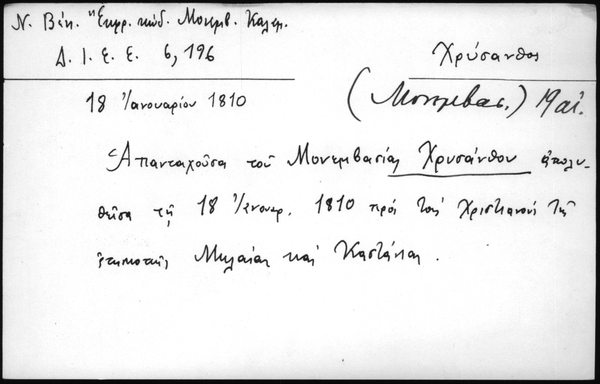 Ν. Βέη. "Εκφρ. κώδ. Μονεμβ. Καλαμ.
Δ. Ι. Ε. Ε. 6, 196
Χρύσανθος
18 Ἰανουαρίου 1810
(Μονεμβας.) 19 αἰ.
Ἀπανταχοῦσα τοῦ Μονεμβασίας Χρυσάνθου ἀπολυ-
θεῖσα τῇ 18 Ἰανουαρ. 1810 πρὸς τοὺς Χριστιανοὺς τῆς
Μηλαίας καὶ Καστανίας.